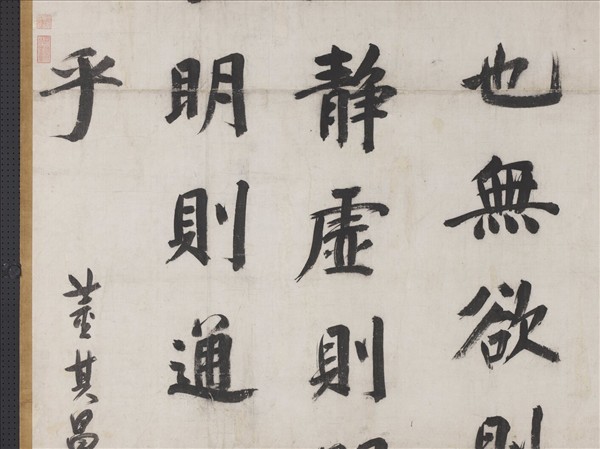 也無欲則
静虛則明
明則通
乎
董其昌